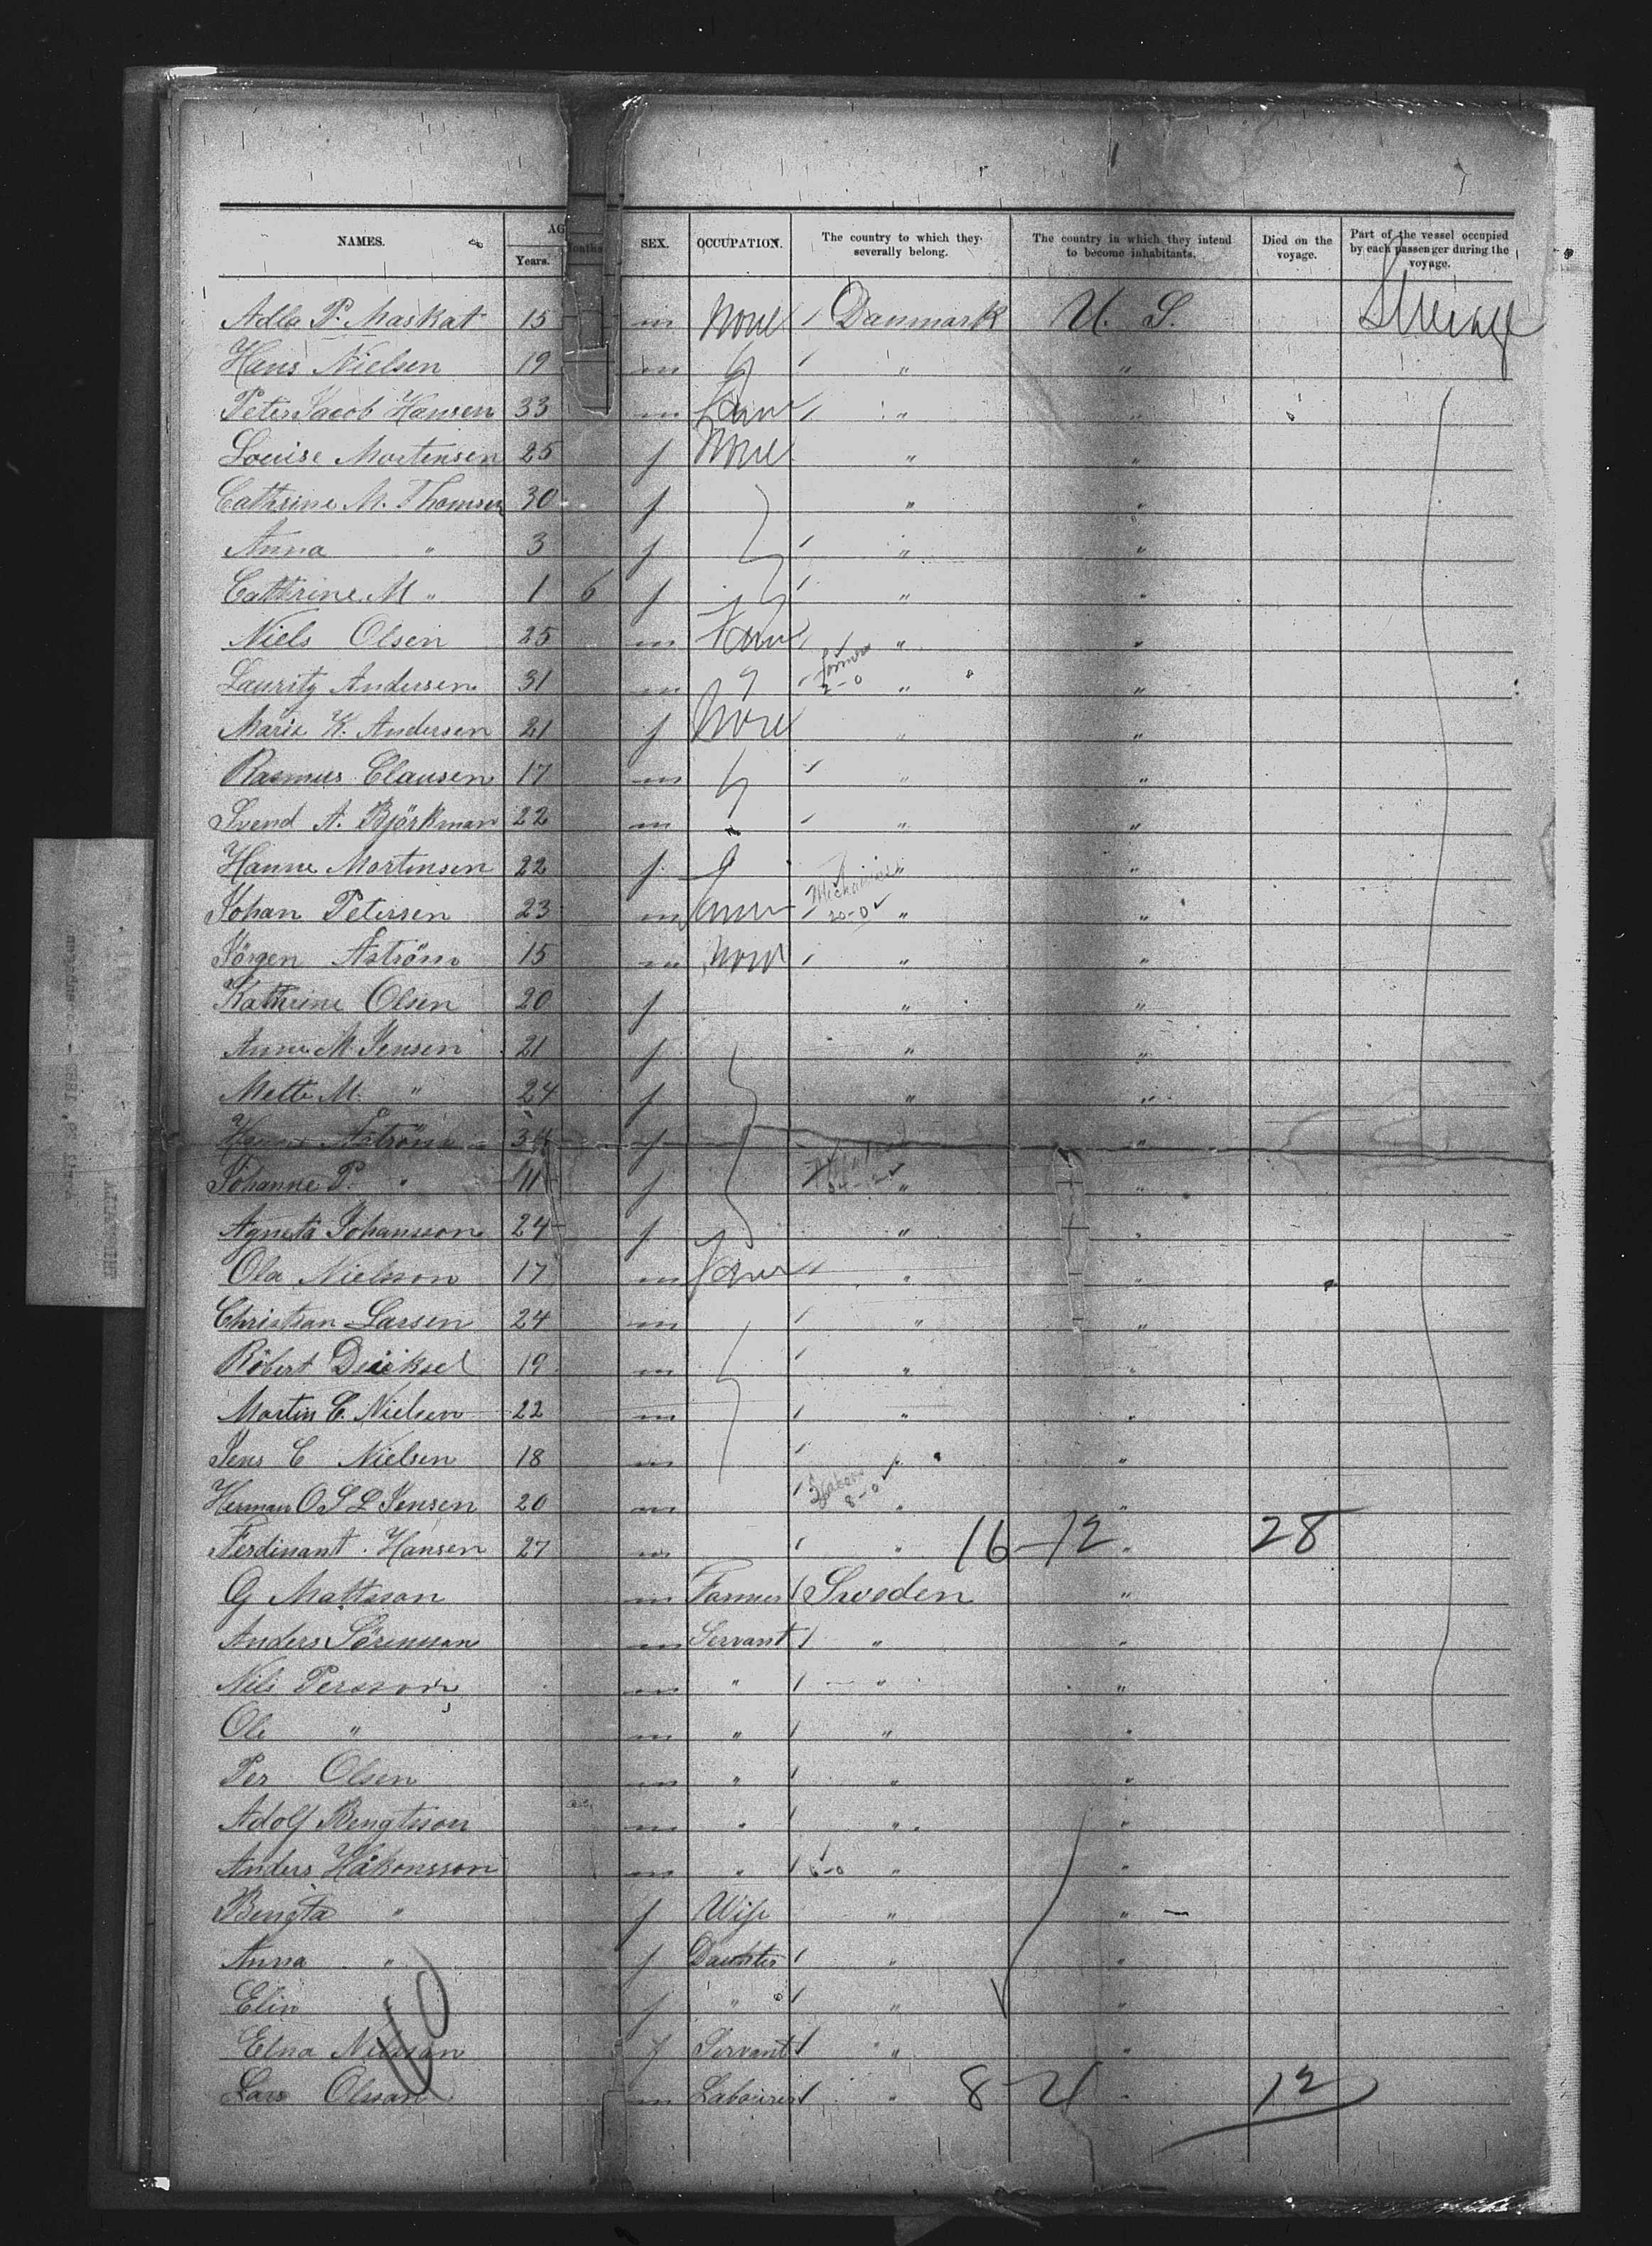 NAMES. AG Years. Months SEX. OCCUPATION. The country to which they severally belong. The country in which they intend to become inhabitants. Died on the voyage. Part of the vessel occupied by each passenger during the voyage.
Adla P. Maskat 15 m None Danmark U. S. Steerage
Hans Nielsen 19 m " "
Peter Jacob Hansen 33 m " "
Louise Mortensen 25 f None " "
Cathrine M. Thomsen 30 f " "
Anna " 3 f " "
Cathrine M " 1 6 f " "
Niels Olsen 25 m " "
Lauritz Andersen 31 m farmer 2-0 " "
Marie K. Andersen 21 f None " "
Rasmus Clausen 17 m " "
Svend A. Björkman 22 m " "
Hanne Mortensen 22 f " "
Johan Petersen 23 m Mechanics 20-0 " "
Jörgen Åström 15 m None " "
Kathrine Olsen 20 f " "
Anne M. Jensen 21 f " "
Mette M. " 24 f " "
Åström 34 f "
Johanne P. " 11 f " "
Agneta Johansson 24 f " "
Ola Nielsson 17 m " "
Christian Larsen 24 m " "
Robert 19 m " "
Martin C. Nielsen 22 m " "
Jens C Nielsen 18 m " "
Herman O S L Jensen 20 m 8-0 " "
Ferdinant Hansen 27 m " 16-12 " 28
G Mattsson m Farmer Sweden "
Anders Sörensson m Servant " "
Nils Persson m " " "
Ole " m " " "
Per Olsen m " " "
Adolf Bengtsson m " " "
Anders Håkonsson m " 6-0 " "
Bengta " f Wife " "
Anna " f Daughter " "
Elin f " " "
Elna Nilsson f Servant " "
Lars Olsson m Labourer " 8-4 " 12
40